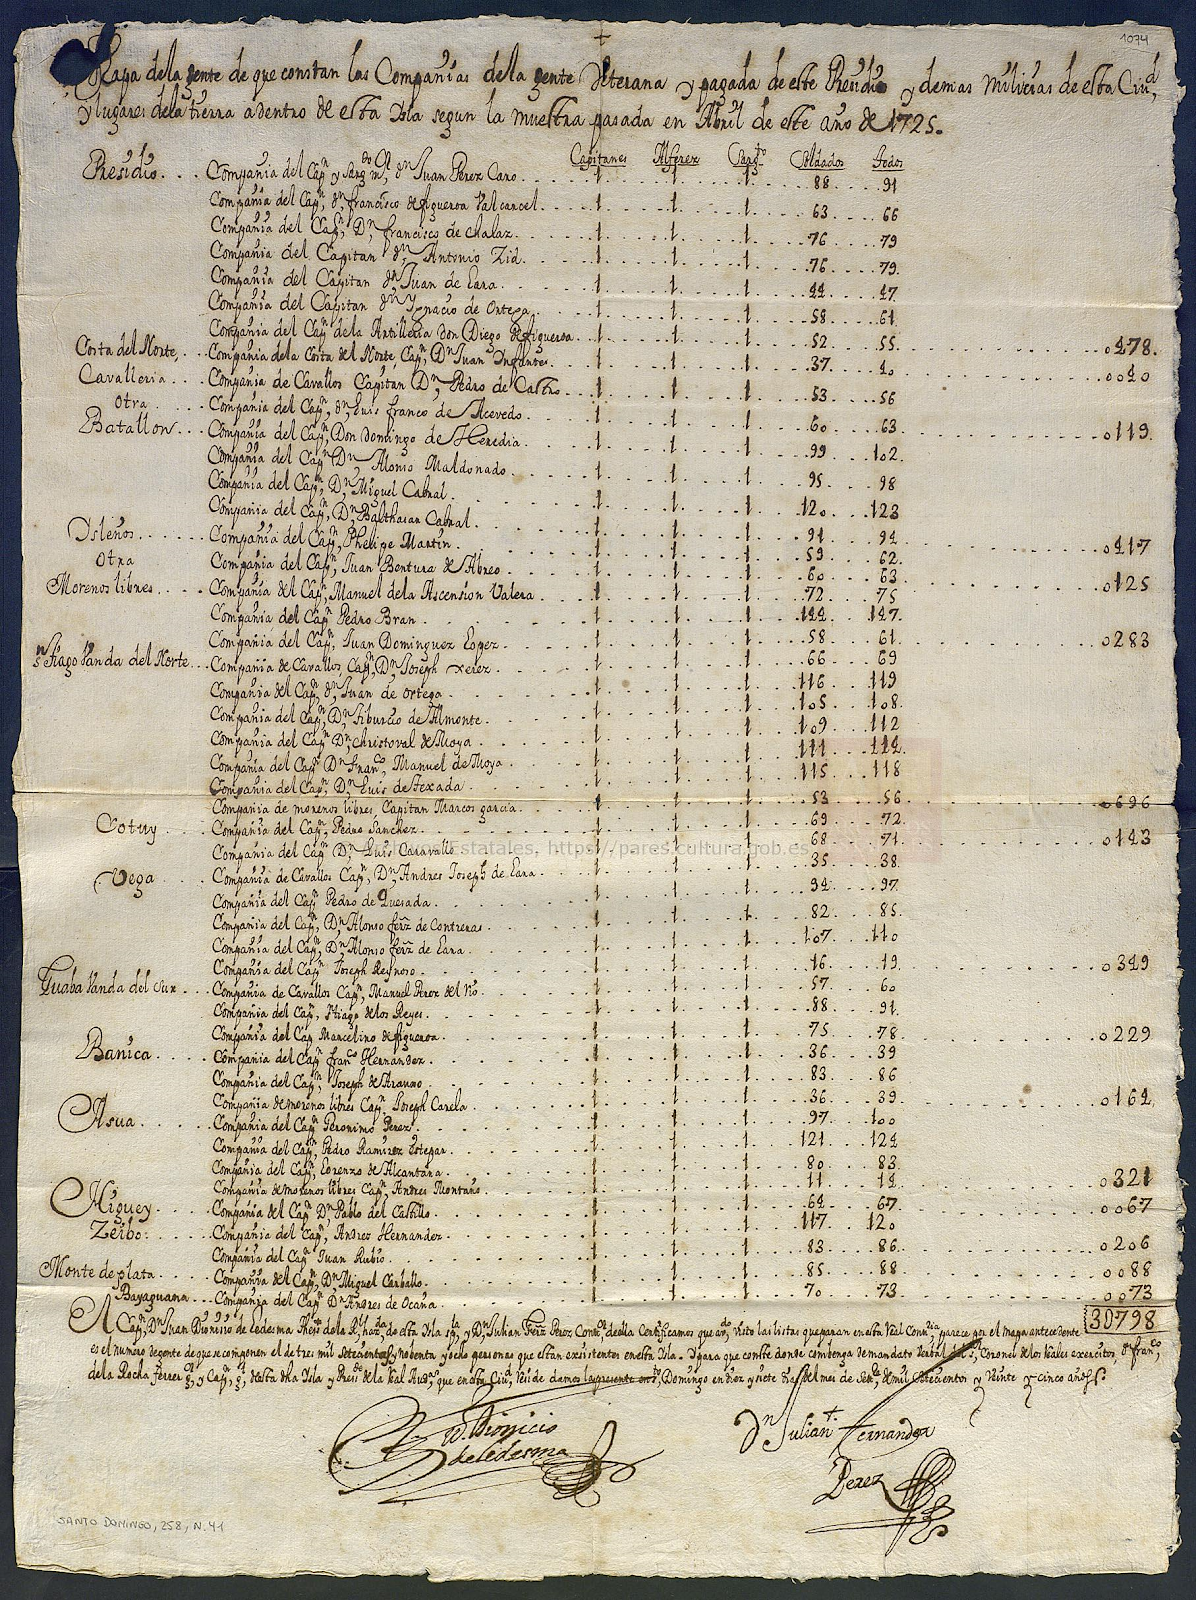 1074
Mapa de la gente de que constan las Compañias de la gente Veterana y pagada de este Presidio y demas Milicias de esta Ciud.d
y lugares de la tierra adentro de esta Isla segun la muestra pasada en Abril de este año de 1725.
Capitanes Alferez Sarg.to Soldados Todos
Presidio... Compañia del Capn y Sargto mor, Dn Juan Perez Caro 1 1 1 88 91
Compañia del Capn, Dn francisco de figueroa Valcancel 1 1 1 63 66
Compañia del Capn, Dn francisco de chalaz 1 1 1 76 79
Compañia del Capitan Dn Antonio Zid 1 1 1 76 79
Compañia del Capitan Dn Juan de Lara 1 1 1 44 47
Compañia del Capitan Dn Ygnacio de Ortega 1 1 1 58 61
Compañia del Capn de la Artilleria don Diego de figueroa 1 1 1 52 55 0478
Costa del Norte... Compañia dela Costa del Norte, Capn, Dn Juan Infante 1 1 1 37 40 0040
Cavalleria... Compañia de Cavallos Capitan Dn, Pedro de Castro 1 1 1 53 56
Otra... Compañia del Capn, Dn Luis franco de Acevedo 1 1 1 60 63 0119
Batallon... Compañia del Capn, Don domingo de Heredia 1 1 1 99 102
Compañia del Capn Dn Alonso Maldonado 1 1 1 95 98
Compañia del Capn, Dn, Miguel Cabral 1 1 1 120 123
Compañia del Capn, Dn Balthasar Cabral 1 1 1 91 94 0417
Isleños... Compañia del Capn, Phelipe Martin 1 1 1 59 62
Otra Compañia del Capn, Juan Bentura de Abreo 1 1 1 60 63 0125
Morenos libres... Compañia del Capn, Manuel dela Ascension Valera 1 1 1 72 75
Compañia del Capn Pedro Bran 1 1 1 144 147
Compañia del Capn, Juan Dominguez Lopez 1 1 1 58 61 0283
Stiago Vanda del Norte... Compañia de Cavallos Capn, Dn, Joseph Xerez 1 1 1 66 69
Compañia del Capn, Dn Juan de Ortega 1 1 1 116 119
Compañia del Capn, Dn, Tiburcio de Almonte 1 1 1 105 108
Compañia del Capn Dn, Christoval de Moya 1 1 1 109 112
Compañia del Capn Dn franco, Manuel de Moya 1 1 1 111 114
Compañia del Capn, Dn, Luis de Texada 1 1 1 115 118
Compañia de morenos libres, Capitan Marcos garcia 1 1 1 53 56 0696
Cotuy... Compañia del Capn, Pedro Sanchez 1 1 1 69 72
Compañia del Capn Dn, Luis Caravallo 1 1 1 68 71 0143
Vega... Compañia de Cavallos Capn, Dn, Andres Joseph de Lara 1 1 1 35 38
Compañia del Capn Pedro de Quesada 1 1 1 94 97
Compañia del Capn, Dn Alonso ferz de Contreras 1 1 1 82 85
Compañia del Capn, Dn Alonso ferz de Lara 1 1 1 107 110
Compañia del Capn Joseph Reynoso 1 1 1 16 19 0349
Guaba Vanda del Sur... Compañia de Cavallos Capn, Manuel Perez del Rio 1 1 1 57 60
Compañia del Capn, Stiago delos Reyes 1 1 1 88 91
Compañia del Capn Marcelino de figueroa 1 1 1 75 78 0229
Banica... Compañia del Capn franco Hernandez 1 1 1 36 39
Compañia del Capn, Joseph de Araumo 1 1 1 83 86
Compañia de morenos libres Capn, Joseph Carela 1 1 1 36 39 0164
Asua... Compañia del Capn Geronimo Perez 1 1 1 97 100
Compañia del Capn, Pedro Ramirez Estepan 1 1 1 121 124
Compañia del Capn, Lorenzo de Alcantara 1 1 1 80 83
Compañia de morenos libres Capn, Andres Montaño 1 1 1 11 14 0321
Higuey... Compañia del Capn Dn Pablo del Castillo 1 1 1 64 67 0067
Zeibo... Compañia del Capn, Andres Hernandez 1 1 1 117 120
Compañia del Capn Juan Rubio 1 1 1 83 86 0206
Monte de plata... Compañia del Capn, Dn, Miguel Carballo 1 1 1 85 88 0088
Bayaguana... Compañia del Capn Dn Andres de Ocaña 1 1 1 70 73 0073
30798
Archivos Estatales, https://pares.cultura.gob.es
Capn, Dn Juan Dionisio de Ledesma Thesro de la Rl hazda, de esta Isla y Dn Julian Ferz Perez Contor de ella Certificamos que aviendo visto las listas que paran en esta Real Contaduria, parece por el mapa antecedente
es el numero de gente de que se componen el de tres mil setecientos y nobenta y ocho personas que estan existentes en esta Isla. Y para que conste donde combenga de mandato verbal del Sr, Coronel de los Reales exercitos, Dn Franco,
de la Rocha ferrer Govr, y Capn, gl, de esta dha Isla y Presidte de la Real Auda, que en esta Ciud, reside damos la presente en Sto, Domingo en diez y siete dias del mes de Sete, de mil setecientos y veinte y cinco años
D. Dionicio
de Ledesma
Dn Julian Fernandez
Perez
SANTO DOMINGO, 258, N.41